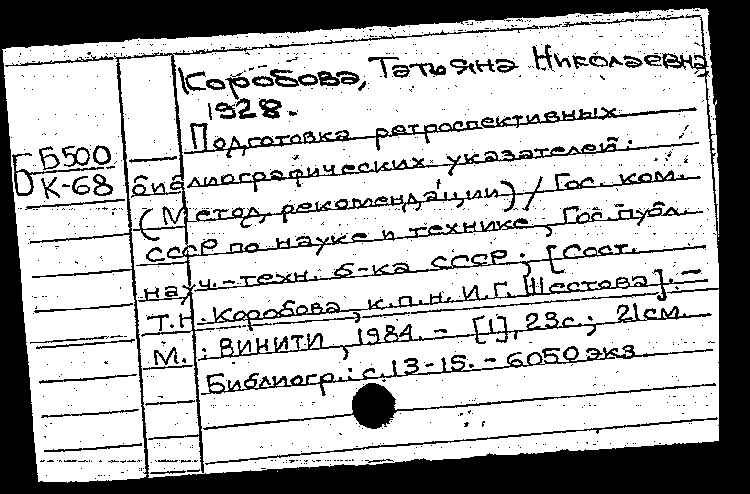 Коробова, Татьяна Николаевна
1928.
Подготовка ретроспективных
Б Б500
К-68
библиографических указателей:
(Метод. рекомендации) / Гос. ком.
СССР по науке и технике, Гос. публ.
науч.-техн. б-ка СССР; [Сост.
Т.Н. Коробова, к.п.н. И.Г. Шестова]. —
М.: ВИНИТИ, 1984. - [1], 23с.; 21см.
Библиогр.: с.13-15. - 6050 экз.